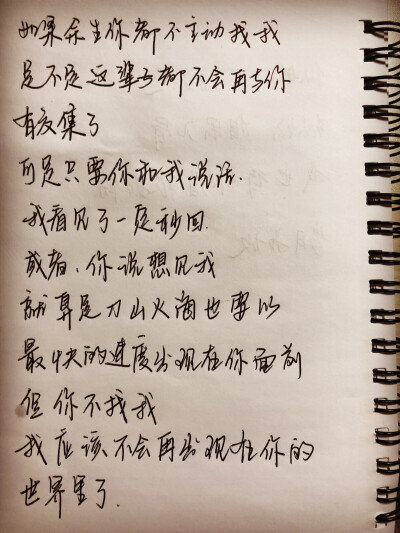 如果余生你都不主动找我
是不是这辈子都不会再与你
有交集了
可是只要你和我说话.
我看见了一定秒回.
或者、你说想见我
就算是刀山火海也要以
最快的速度出现在你面前
但你不找我
我应该不会再出现在你的
世界里了.